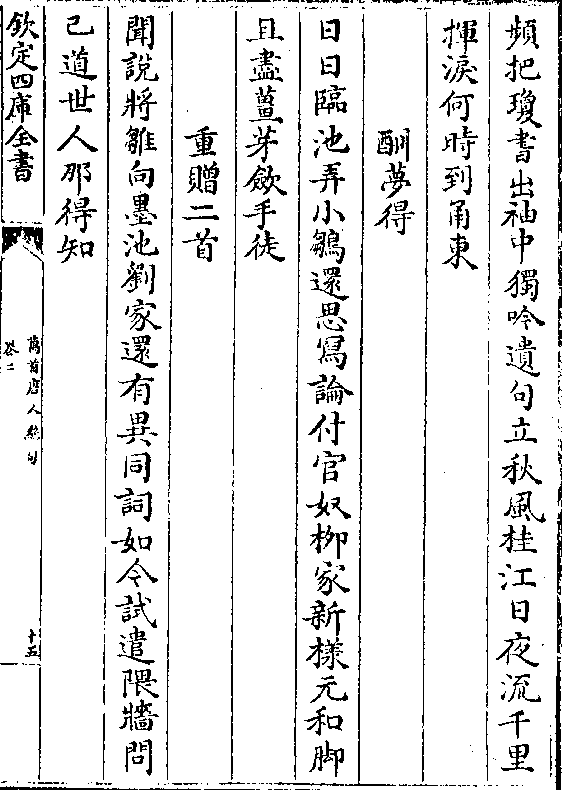 頻把瓊書出袖中獨吟遺句立秋風桂江日夜流千里
揮淚何時到甬東
酬夢得
日日臨池弄小鶵還思寫論付官奴柳家新様元和脚
且盡薑芽歛手徒
重贈二首
聞說將雛向墨池劉家還有異同詞如今試遣隈牆問
已道世人那得知
欽定四庫全書
萬首唐人絶句
卷二
十五